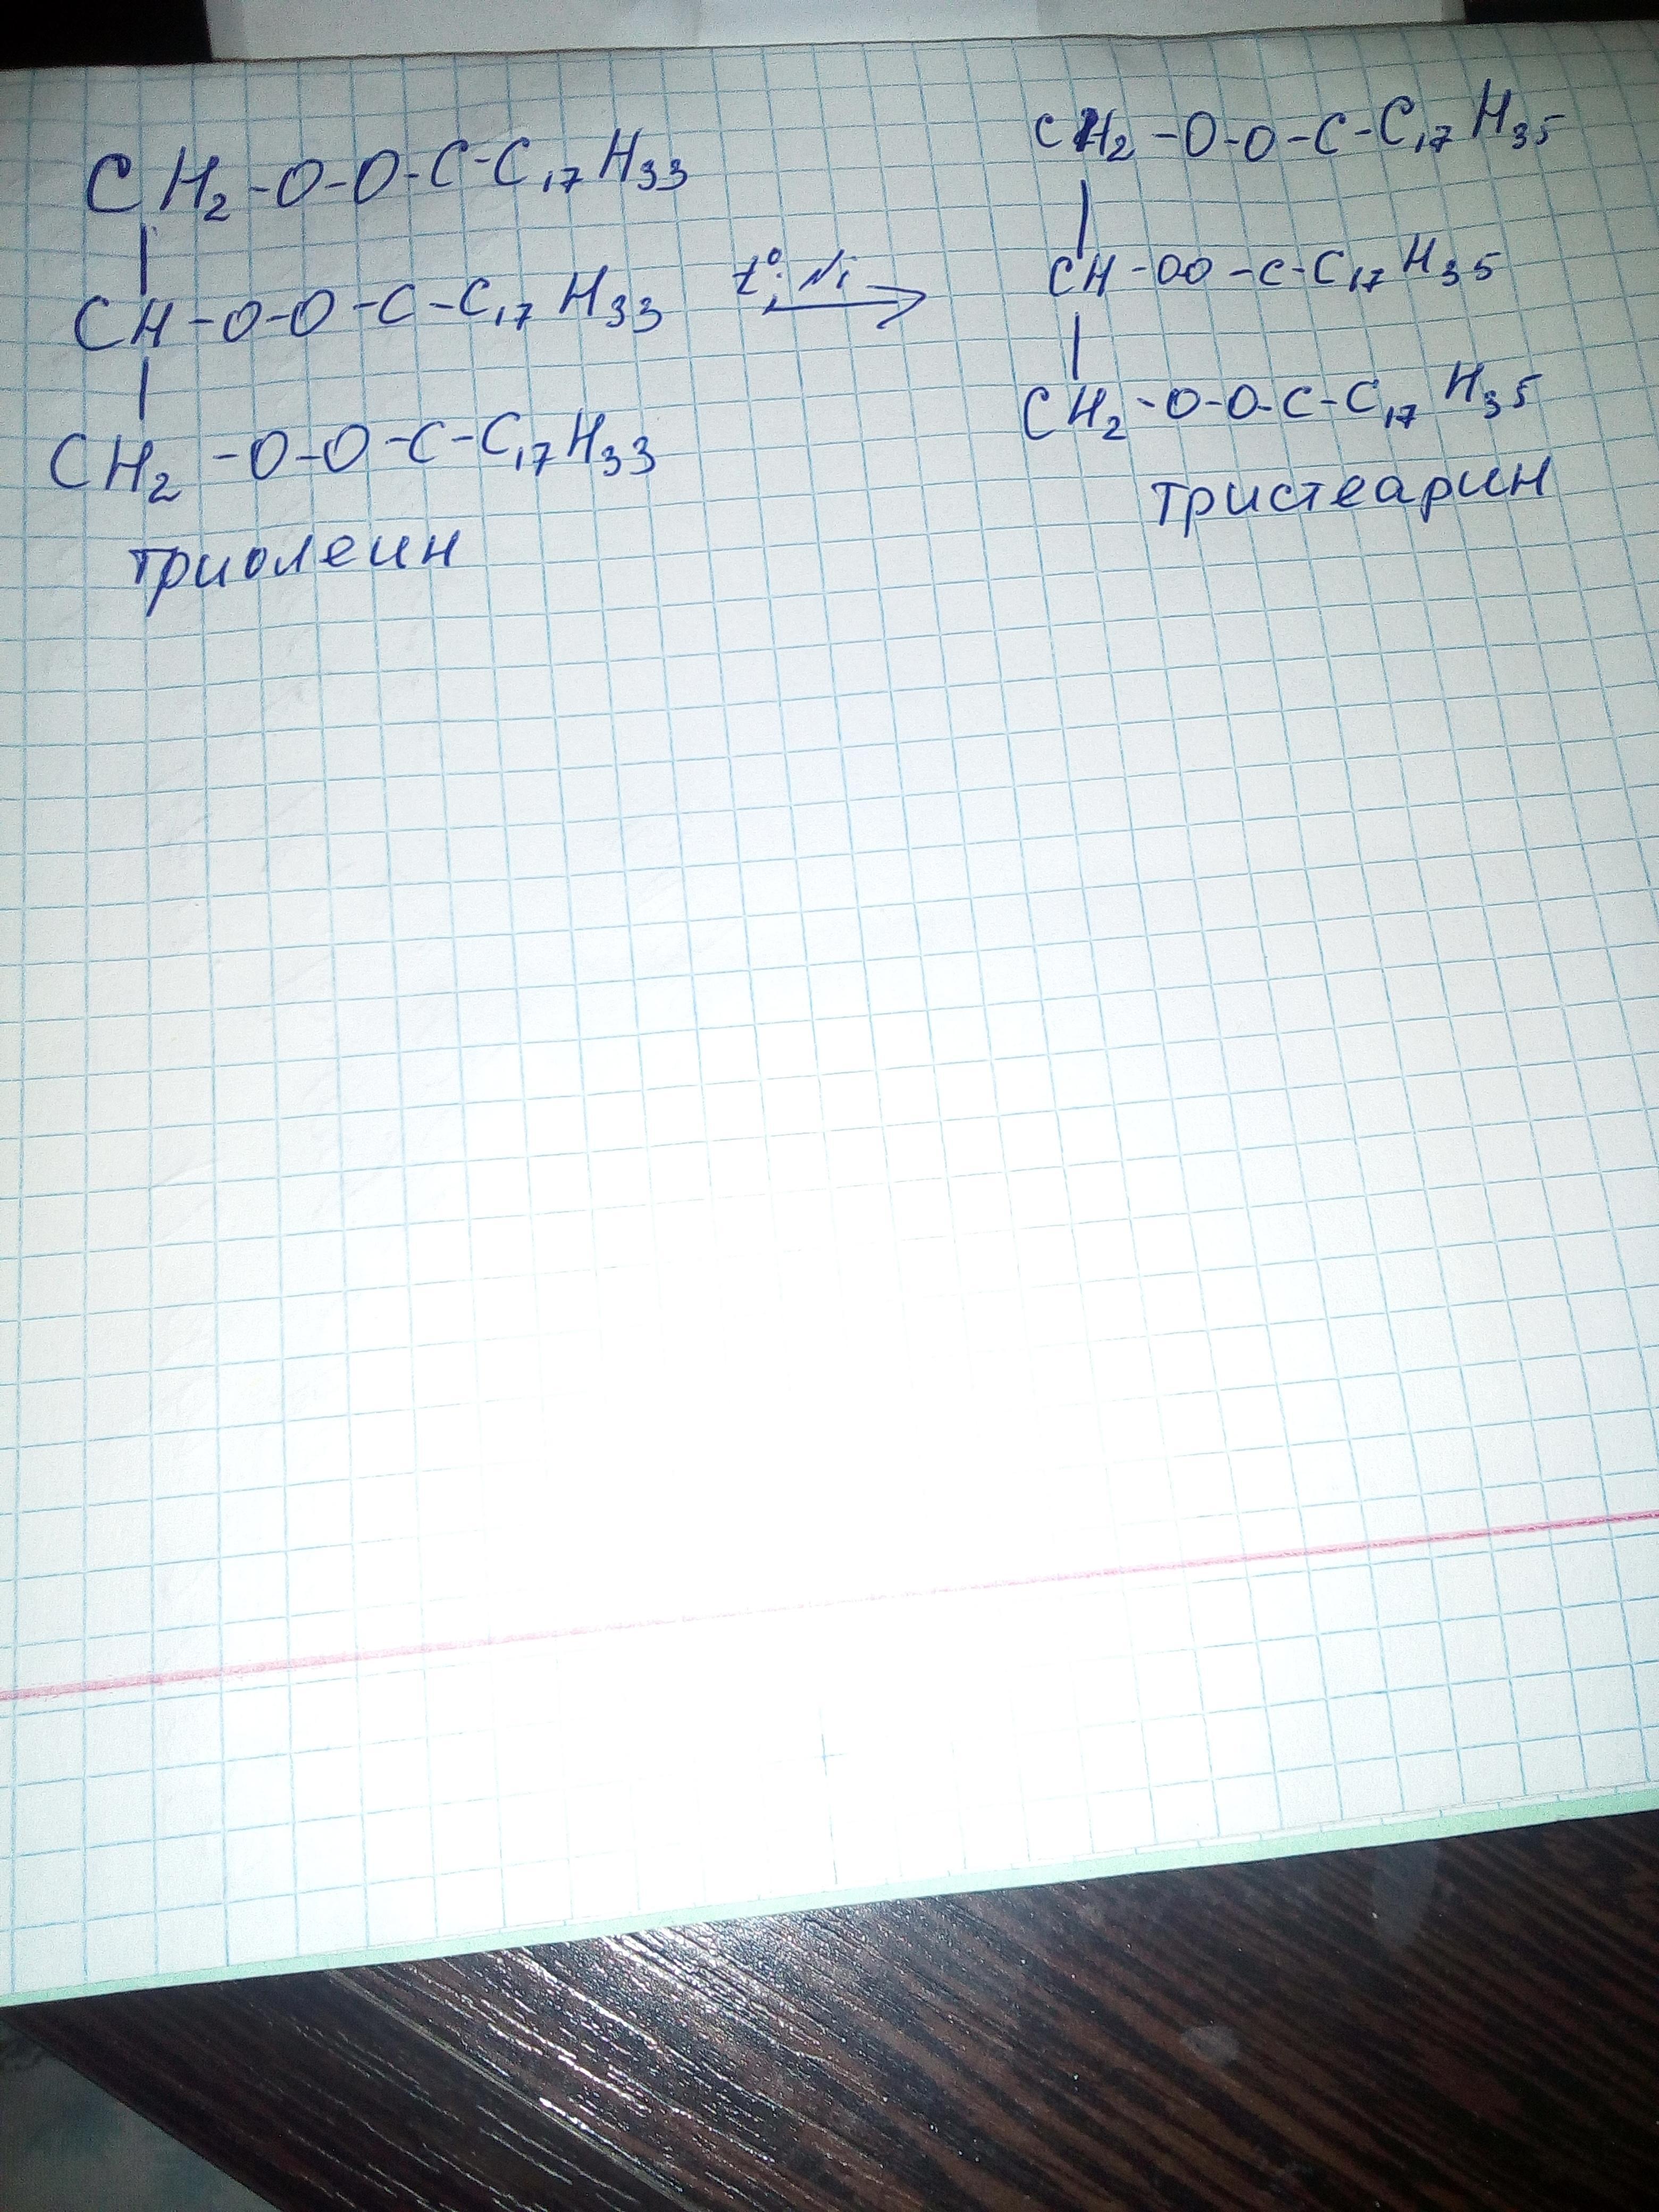 CH₂-O-O-C-C₁₇H₃₃
CH-O-O-C-C₁₇H₃₃
CH₂-O-O-C-C₁₇H₃₃
триолеин
t°, Ni
CH₂-O-O-C-C₁₇H₃₅
CH-OO-C-C₁₇H₃₅
CH₂-O-O-C-C₁₇H₃₅
тристеарин